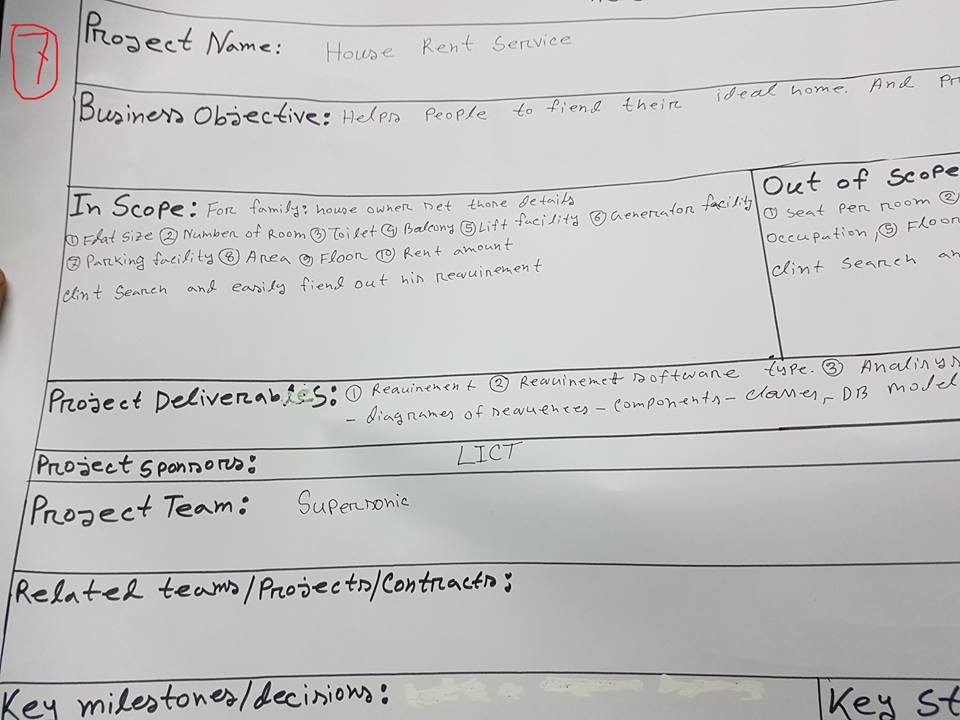 7
Project Name: House Rent Service
Business Objective: Helps People to fiend their ideal home. And Pr
In Scope: For family: house owner set those details
① Flat size ② Number of Room ③ Toilet ④ Balcony ⑤ Lift facility ⑥ Generator facility
⑦ Parking facility ⑧ Area ⑨ Floor ⑩ Rent amount
clint Search and easily fiend out his requirement
Out of Scope
① Seat Per room ②
Occupation, ⑤ Floor
clint Search an
Project Deliverables: ① Requirement ② Requiremet software type. ③ Analisys
- diagrames of sequences - components - classes, - DB model
Project Sponsors: LICT
Project Team: Supersonic
Related teams/Projects/Contracts:
Key milestones/decisions:
Key st